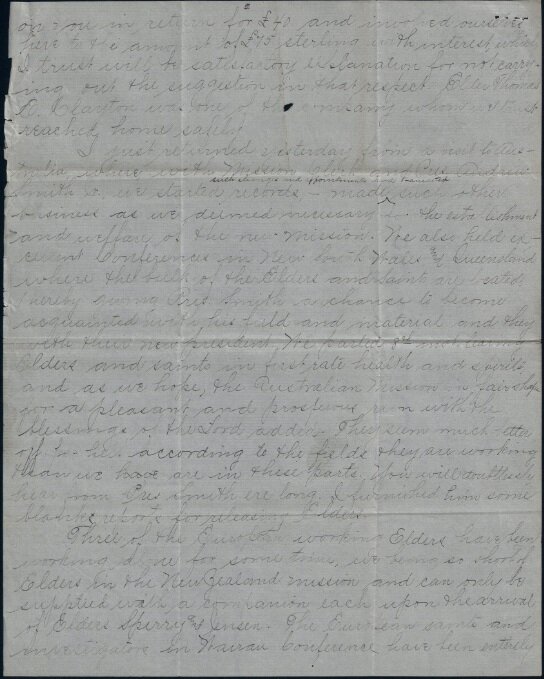 on you in return for £40 and involved ourselves
here to the amount of £45 sterling with interest which
I trust will be satisfactory explanation for not carry-
ing out the suggestion in that respect. Elder Thomas
Clayton was one of the company whom
reached home safely.
I just returned yesterday from a visit to Aus-
tralia, where with Mission and Pres. Andrew
Smith Jr. we started records — made such other
such
business as we deemed necessary to the establishment
and welfare of the new mission. We also held ex-
cellent Conferences in New South Wales & Queensland
where the bulk of the Elders and saints are located,
thereby giving Pres. Smith a chance to become
acquainted with his field and material and they
with their new president. We parted leaving
Elders and saints in first rate health and spirits,
and as we hope, the Australian Mission in fair shape
for a pleasant and prosperous run with the
blessings of the Lord added. They seem much better
off according to the fields they are working
than we are in these parts. You will doubtlessly
hear from Pres Smith ere long. I furnished him some
blank reports for releasing Elders.
Three of the European working Elders have been
working alone for some time, we being so short of
Elders in the New Zealand mission and can only be
supplied with a companion each upon the arrival
of Elders Sperry & Jensen. The European saints and
investigators in Wairau Conference have been entirely